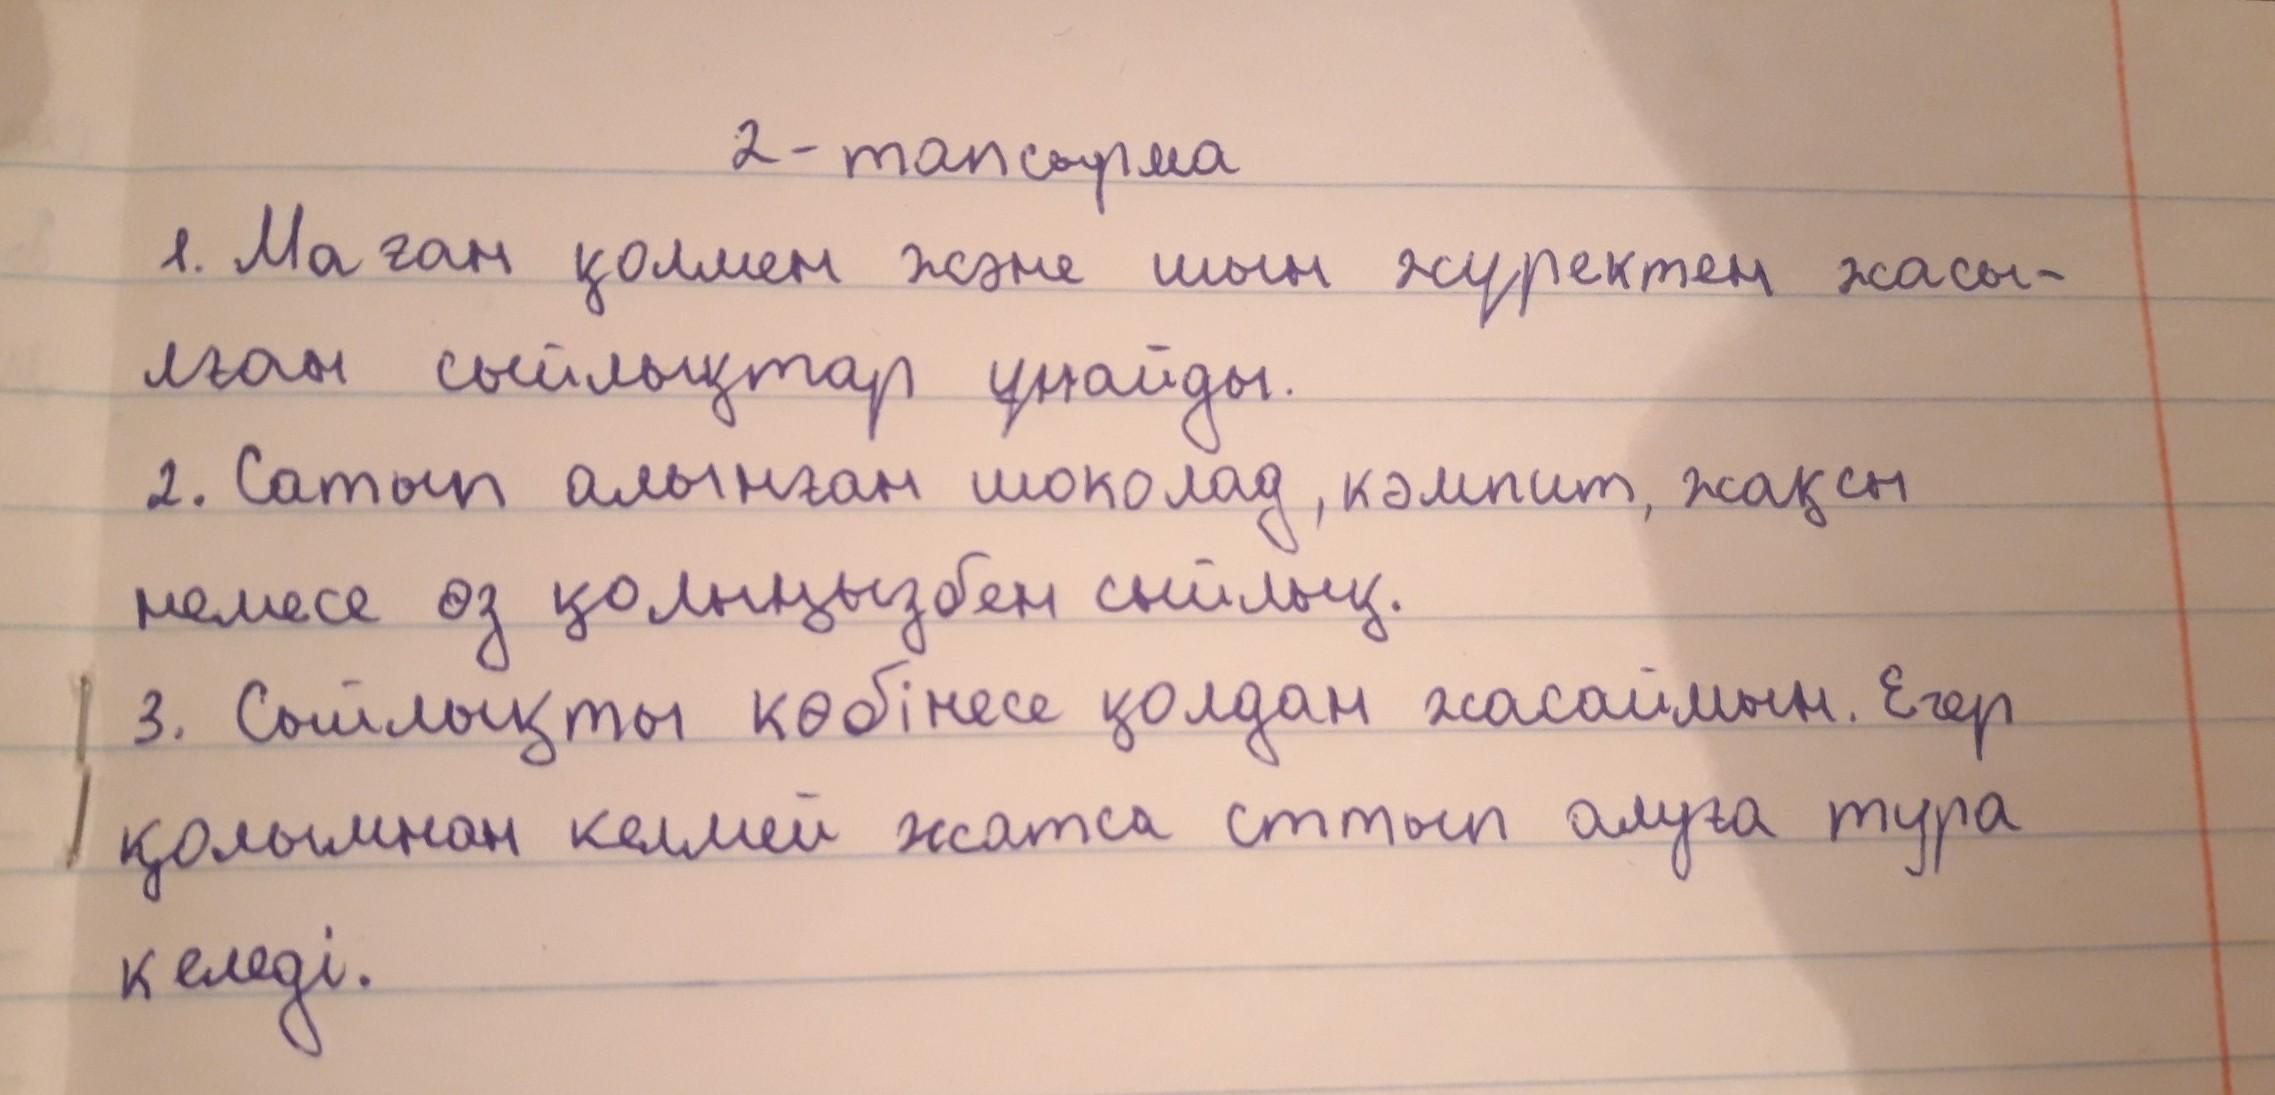 2-тапсырма
1. Маған қолмен және шын жүректен жасы-
лған сыйлықтар ұнайды.
2. Сатып алынған шоколад, кәмпит, жақсы
немесе өз қолыңызбен сыйлық.
3. Сыйлықты көбінесе қолдан жасаймын. Егер
қолымнан келмей жатса сттып алуға тура
келеді.